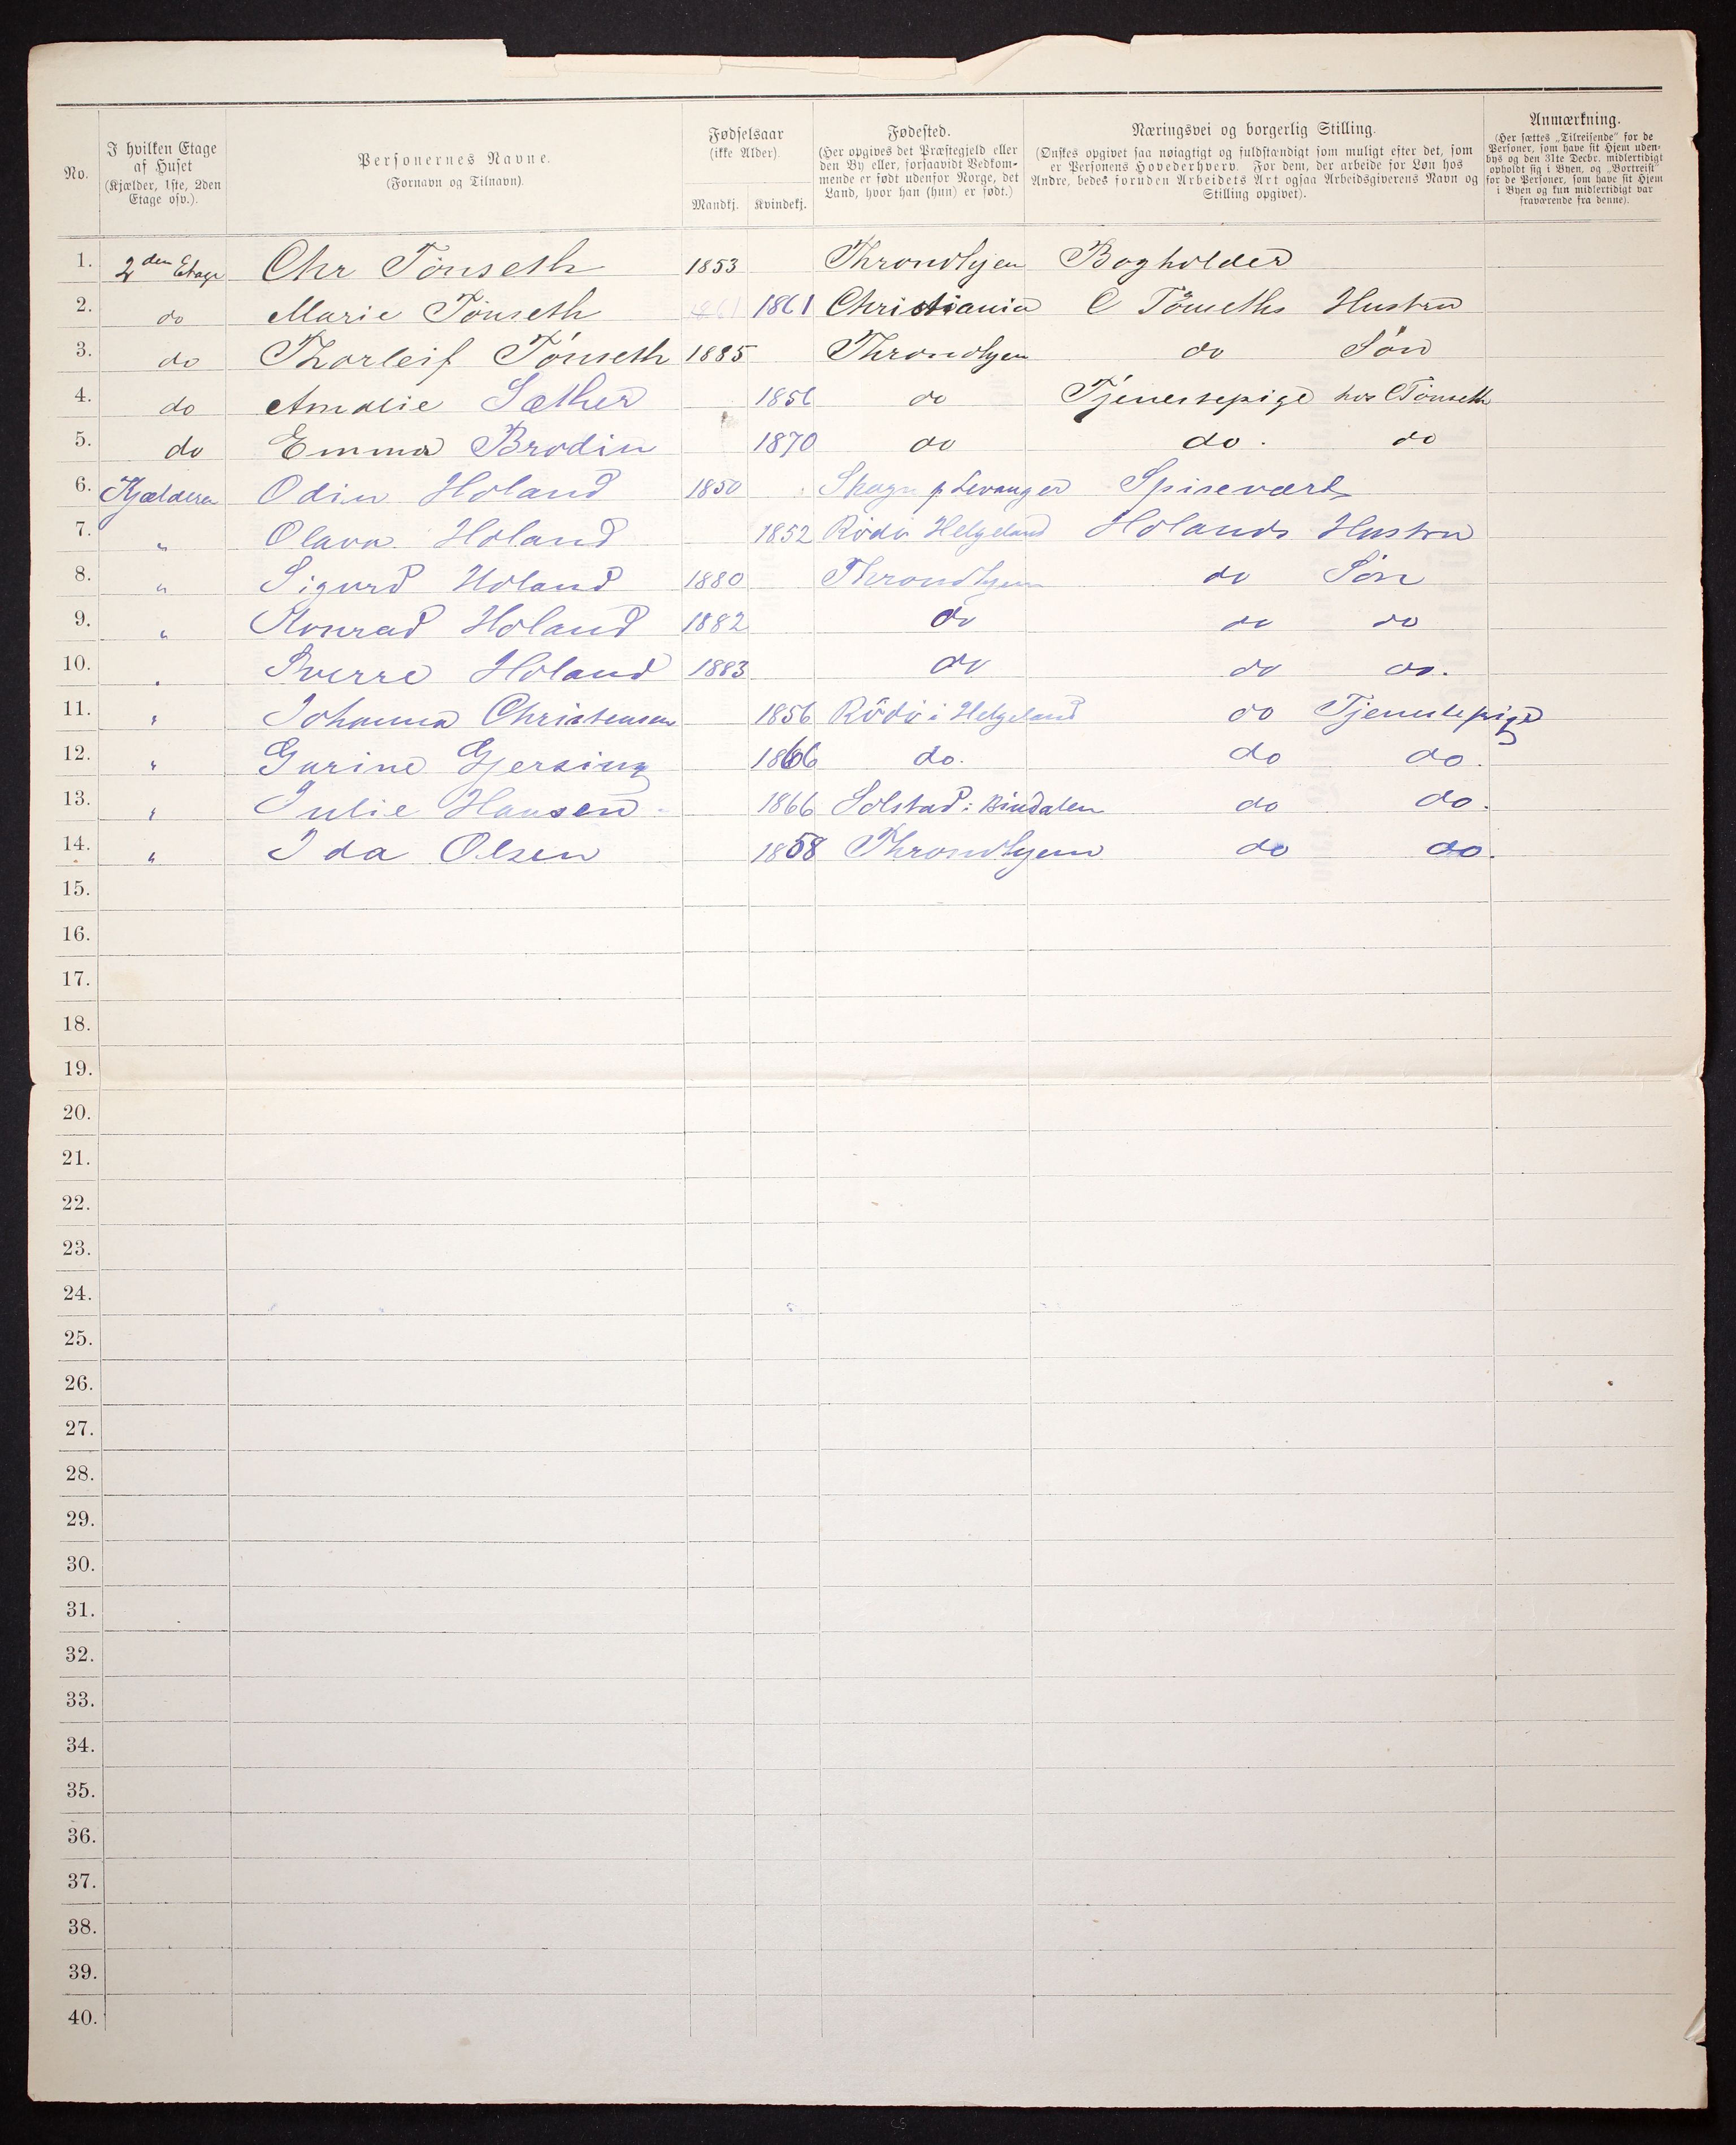 No.
I hvilken Etage af Huset (Kjælder, 1ste, 2den Etage osv.).
Personernes Navne. (Fornavn og Tilnavn).
Fødselsaar (ikke Alder). Mandkj. Kvindekj.
Fødested. (Her opgives det Præstegjeld eller den By eller, forsaavidt Vedkommende er født udenfor Norge, det Land, hvor han (hun) er født.)
Næringsvei og borgerlig Stilling. (Ønskes opgivet saa nøiagtigt og fuldstændigt som muligt efter det, som er Personens Hovederhverv. For dem, der arbeide for Løn hos Andre, bedes foruden Arbeidets Art ogsaa Arbeidsgiverens Navn og Stilling opgivet).
Anmærkning. (Her sættes „Tilreisende" for de Personer, som have sit Hjem udenbys og den 31te Decbr. midlertidigt opholdt sig i Byen, og „Bortreist" for de Personer, som have sit Hjem i Byen og kun midlertidigt var fraværende fra denne).
1. 2den Etage Chr Tönseth 1853 Throndhjem Bogholder
2. do Marie Tönseth 1861 1861 Christiania C Tönseths Hustru
3. do Thorleif Tönseth 1885 Throndhjem do Søn
4. do Amalie Sæther 1856 do Tjenestepige hos C Tönseth
5. do Emma Brodin 1870 do do. do
6. Kjælderen Odin Holand 1850 Skogn p Levanger Spisevært
7. " Olava Holand 1852 Rödö Helgeland Holands Hustru
8. " Sigurd Holand 1880 Throndhjem do Søn
9. " Konrad Holand 1882 do do do
10. " Sverre Holand 1883 do do do.
11. " Johanna Christensen 1856 Rödö i Helgeland do Tjenestepige
12. " Gurine Gjersing 1866 do. do do.
13. " Julie Hansen 1866 Solstad i Bindalen do do.
14. " Ida Olsen 1858 Throndhjem do do.
15.
16.
17.
18.
19.
20.
21.
22.
23.
24.
25.
26.
27.
28.
29.
30.
31.
32.
33.
34.
35.
36.
37.
38.
39.
40.